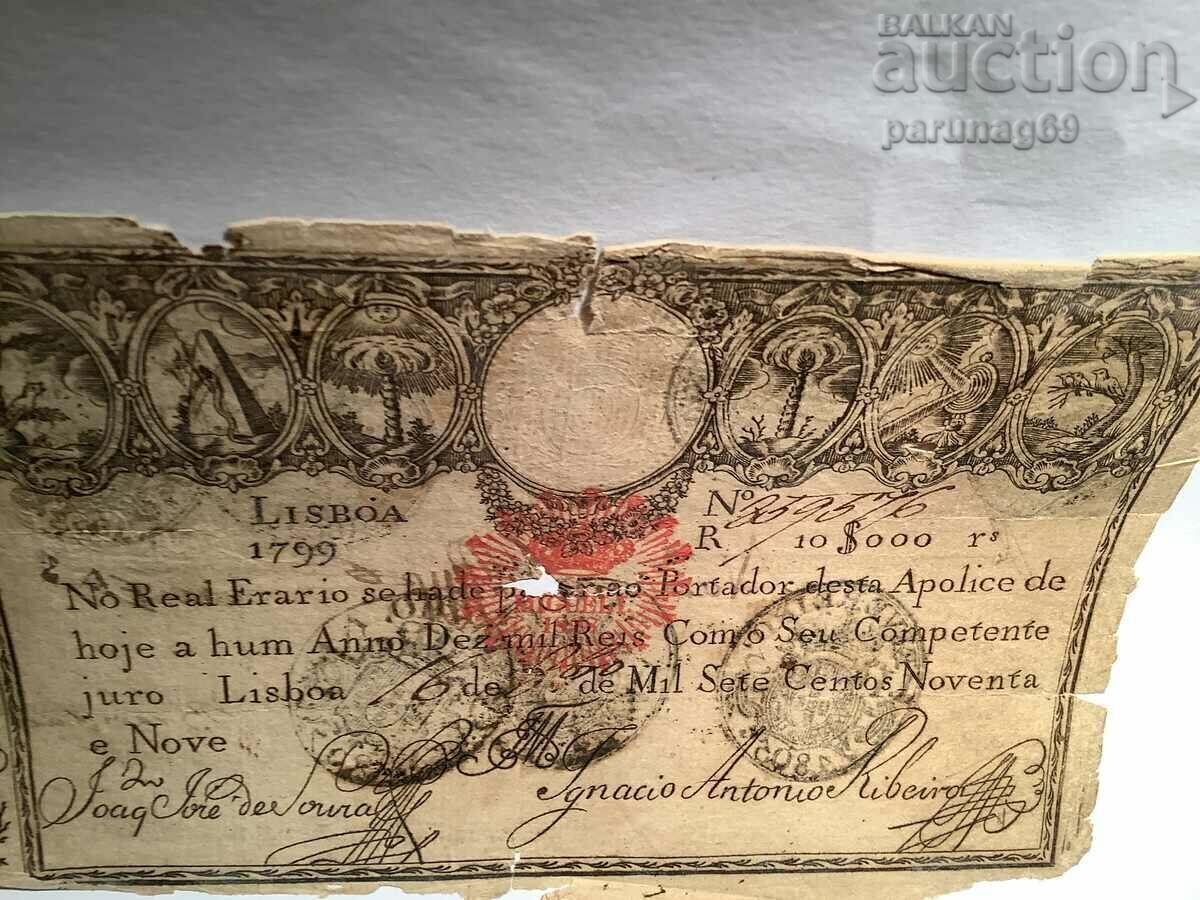 BALKAN
auction
parunag69
LISBOA
1799
Nº
R. 10 $000 rs
No Real Erario se hade ao Portador desta Apolice de
hoje a hum Anno Dez mil Reis Com o Seu Competente
juro Lisboa 16 de de Mil Sete Centos Noventa
e Nove
Joaq José de Soura
Ignacio Antonio Ribeiro